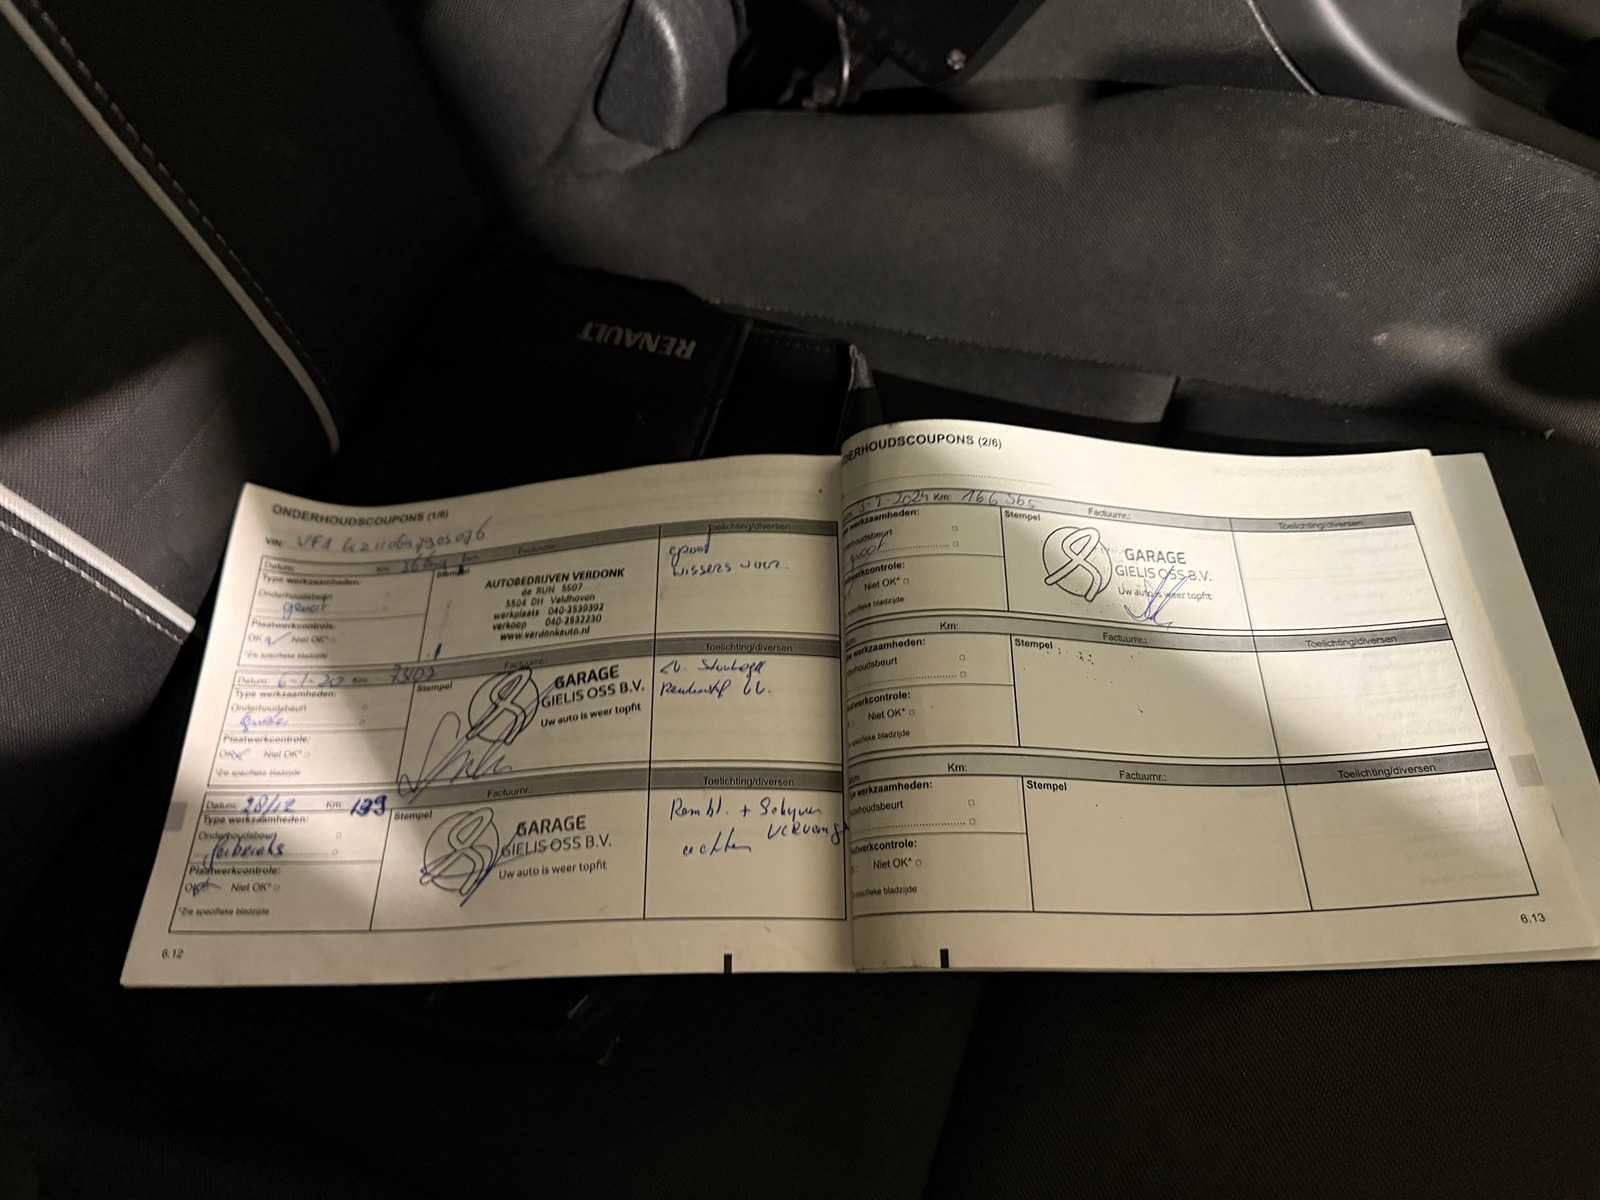 RENAULT
ONDERHOUDSCOUPONS (1/6)
VIN:
Datum: Km: Factuurnr.: Toelichting/diversen
Type werkzaamheden: Stempel
Onderhoudsbeurt
groot
Plaatwerkcontrole:
OK Niet OK*
*Zie specifieke bladzijde
AUTOBEDRIJVEN VERDONK
de RUN 5507
5504 DH Veldhoven
werkplaats 040-2539392
verkoop 040-2532230
www.verdonkauto.nl
wissers voor.
Datum: 6-1-20 Km: Factuurnr.: Toelichting/diversen
Type werkzaamheden: Stempel
Onderhoudsbeurt
Plaatwerkcontrole:
OK Niet OK*
*Zie specifieke bladzijde
GARAGE
GIELIS OSS B.V.
Uw auto is weer topfit
Datum: 28/12 Km: Factuurnr.: Toelichting/diversen
Type werkzaamheden: Stempel
Onderhoudsbeurt
Plaatwerkcontrole:
OK Niet OK*
*Zie specifieke bladzijde
GARAGE
GIELIS OSS B.V.
Uw auto is weer topfit
Rembl. + Schyven
achter vervang
6.12
DERHOUDSCOUPONS (2/6)
Km: 166 565 Factuurnr.: Toelichting/diversen
werkzaamheden: Stempel
derhoudsbeurt
groot
werkcontrole:
Niet OK*
specifieke bladzijde
GARAGE
GIELIS OSS B.V.
Uw auto is weer topfit
Km: Factuurnr.: Toelichting/diversen
werkzaamheden: Stempel
erhoudsbeurt
atwerkcontrole:
Niet OK*
specifieke bladzijde
Km: Factuurnr.: Toelichting/diversen
werkzaamheden: Stempel
erhoudsbeurt
aatwerkcontrole:
Niet OK*
specifieke bladzijde
6.13